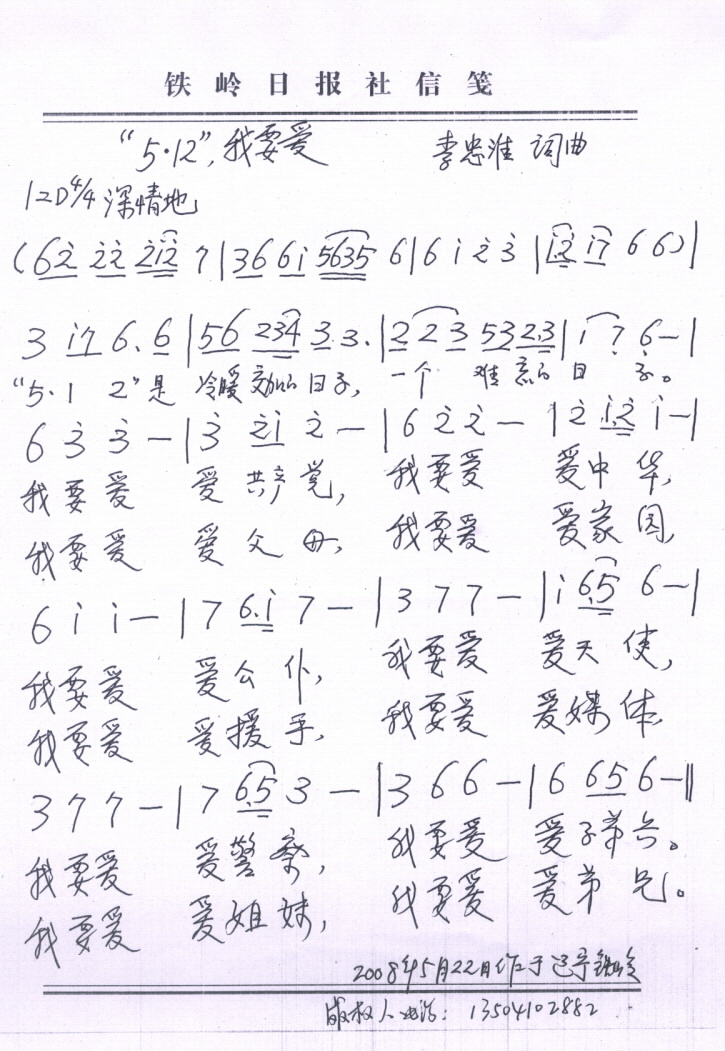 铁岭日报社信笺
“5·12”,我要爱 李忠淮 词曲
1=D 4/4 深情地
(6 2̇ 2̇ 2̇ 2̇ 1̇ 2̇ 7 | 3 6 6 1̇ 5 6 3 5 6 | 6 1̇ 2̇ 3̇ | 1̇ 2̇ 1̇ 7 6 6) |
3 1̇ 7 6. 6 | 5 6 2 3 4 3. 3. | 2 2 3 5 3 2. 3 | 1 7̣ 6̣ — |
“5·1 2”是 冷暖交加的日子, 一个 难忘的 日 子。
6 3̇ 3̇ — | 3̇ 2̇ 1̇ 2̇ — | 6 2̇ 2̇ — | 2̇ 1̇. 2̇ 1̇ — |
我要爱 爱共产党, 我要爱 爱中华,
我要爱 爱父母, 我要爱 爱家园,
6 1̇ 1̇ — | 7 6. 1̇ 7 — | 3 7 7 — | 1̇ 6. 5 6 — |
我要爱 爱公仆, 我要爱 爱天使,
我要爱 爱援手, 我要爱 爱媒体,
3 7 7 — | 7 6. 5 3 — | 3 6 6 — | 6 6 5 6 — ‖
我要爱 爱警察, 我要爱 爱子弟兵。
我要爱 爱姐妹, 我要爱 爱弟兄。
2008年5月22日作于辽宁铁岭
版权人电话: 13504102882